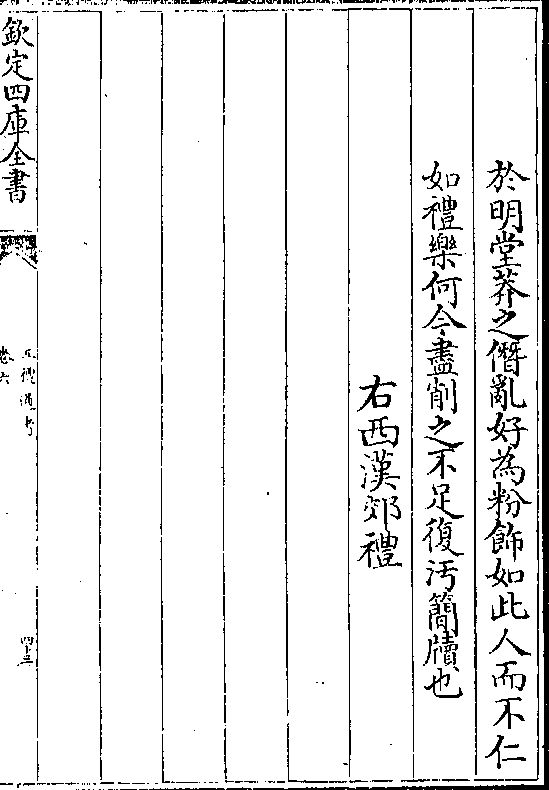 於明堂莽之僭亂好為粉飾如此人而不仁
如禮樂何今盡削之不足復汚簡牘也
右西漢郊禮
欽定四庫全書
五禮通考
卷六
四十三